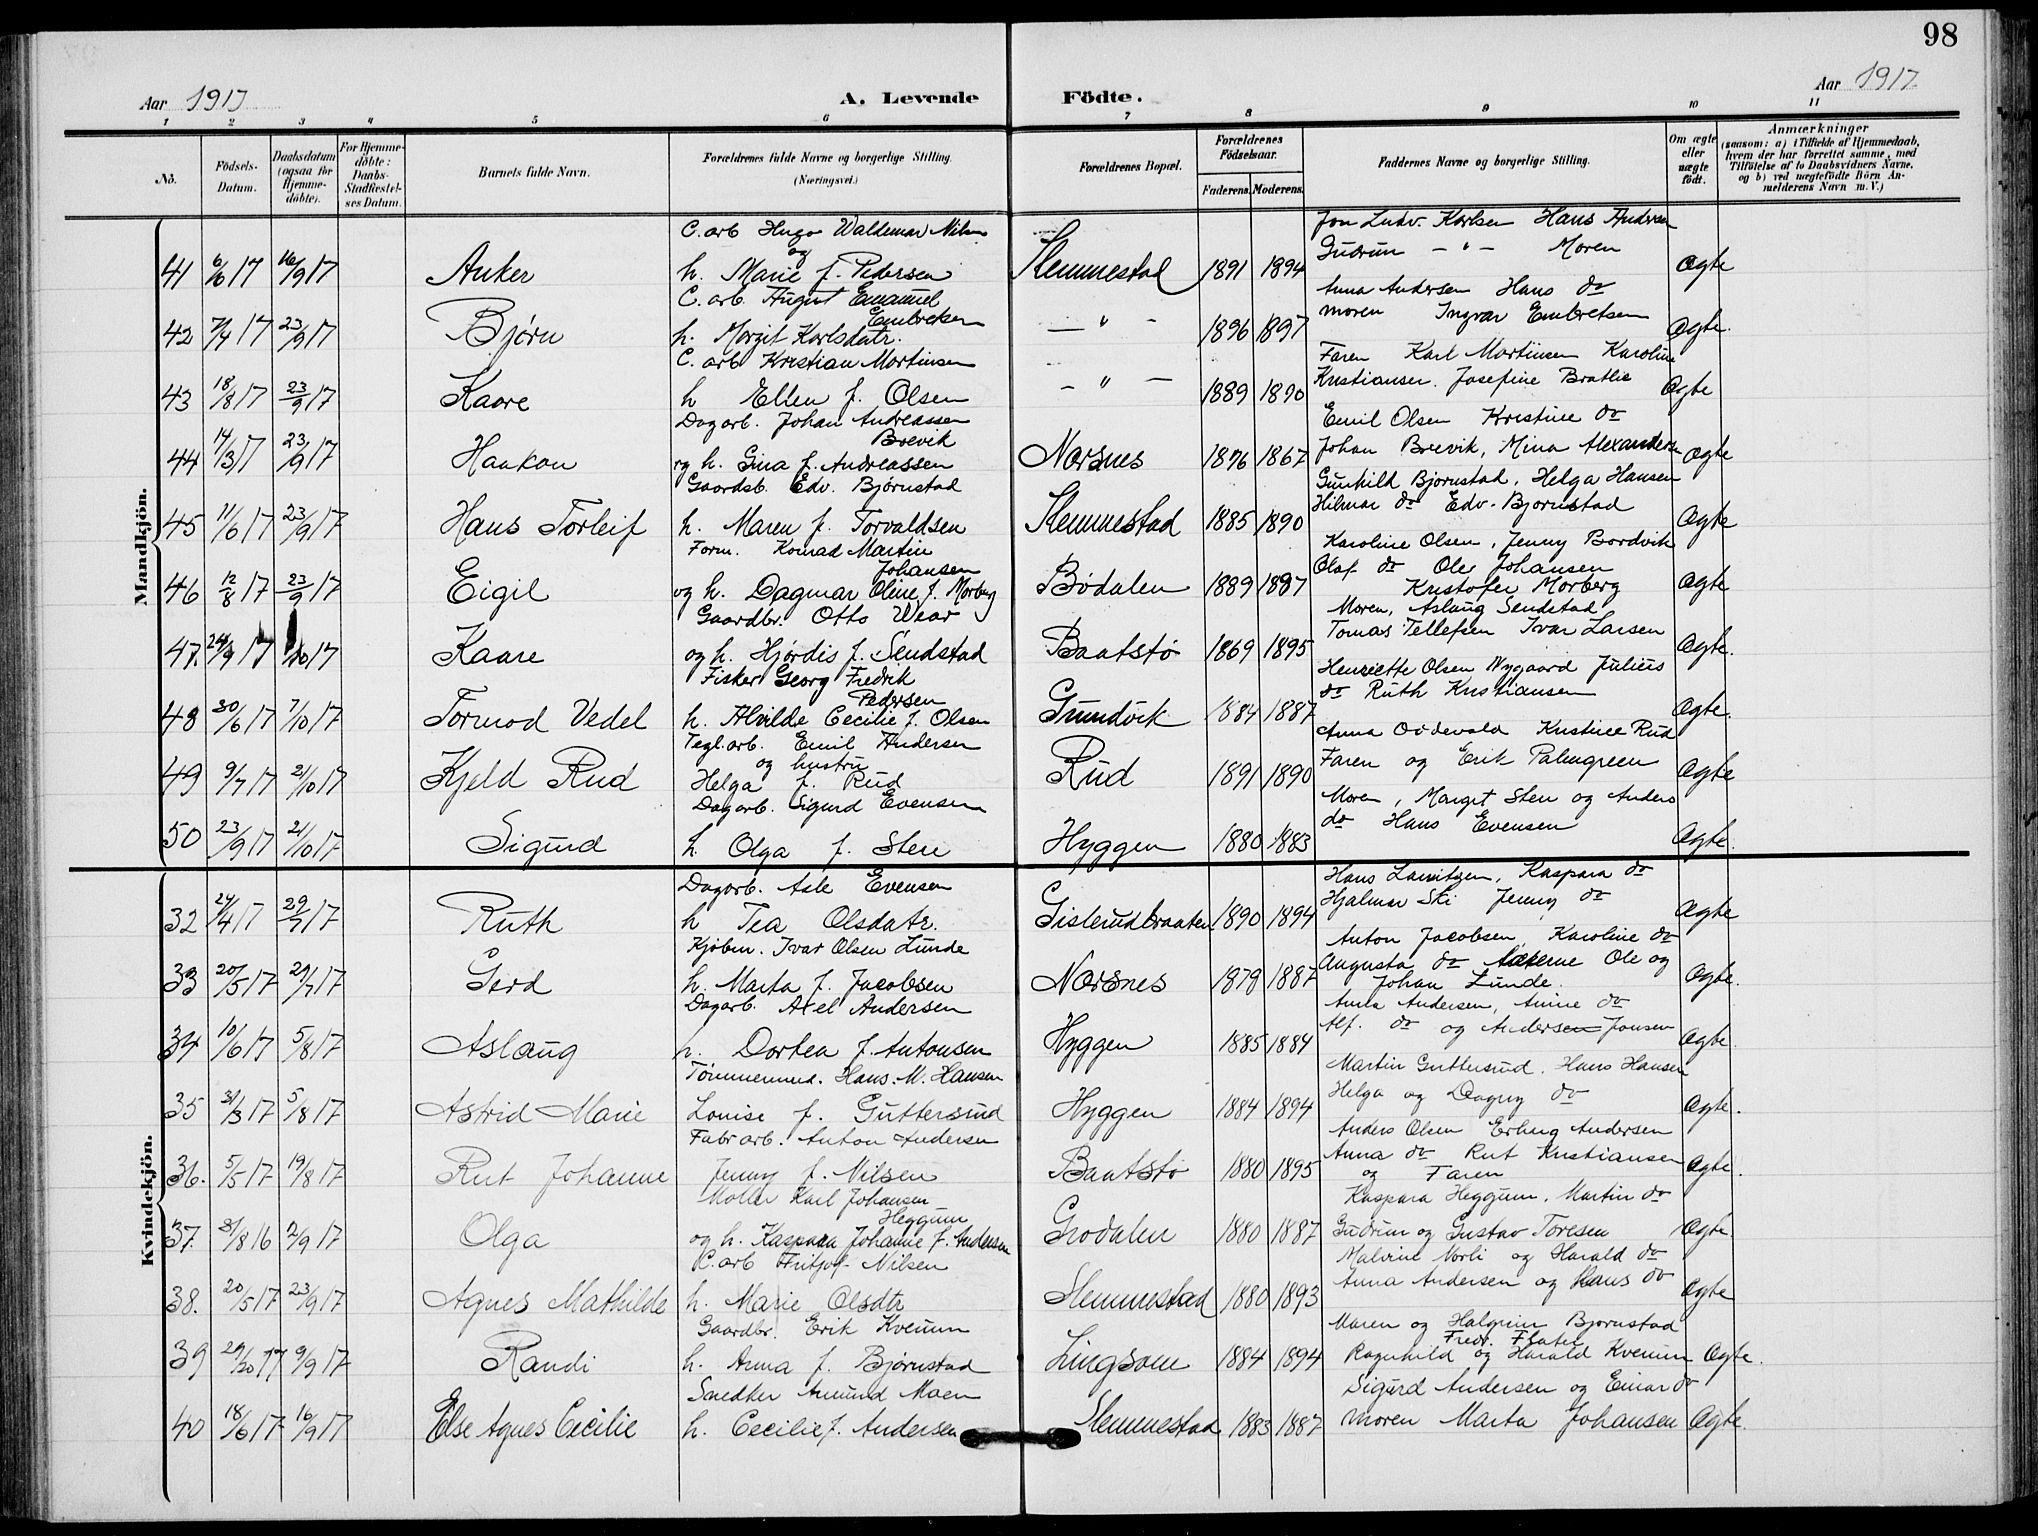 98
Aar 1917
A. Levende Födte.
Aar 1917
1 2 3 4 5 6 7 8 9 10 11
No.
Födsels-Datum.
Daabsdatum (ogsaa for Hjemmedöbte).
For Hjemmedöbte: Daabs-Stadfæstelses Datum.
Barnets fulde Navn.
Forældrenes fulde Navne og borgerlige Stilling. (Næringsvei.)
Forældrenes Bopæl.
Forældrenes Födselsaar.
Faderens. Moderens.
Faddernes Navne og borgerlige Stilling.
Om ægte eller uægte födt.
Anmærkninger
(saasom: a) i Tilfælde af Hjemmedaab, hvem der har forrettet samme, med Tilföielse af to Daabsvidners Navne, og b) ved uægtefödte Börn Anmelderens Navn m. V.)
Mandkjön.
C. arb Hugo Waldemar Nilsen Jon Ludv. Karlsen Hans Andersen
og Gudrun - " - Moren
41 6/6 17 16/9 17 Anker h. Marie f. Pedersen Slemmestad 1891 1894 Ægte
C. arb. August Emanuel Embretsen Anna Andersen Hans do
42 7/4 17 23/9 17 Bjørn h. Margit Karlsdatr. - " - 1896 1897 moren Ingvar Embretsen Ægte.
C. arb Kristian Martinsen Faren Karl Martinsen Karoline
43 18/8 17 23/9 17 Kaare h Ellen f. Olsen - " - 1889 1890 Kristiansen. Josefine Bratlie Ægte
Dagarb. Johan Andreassen Brevik Emil Olsen Kristine do
44 14/3 17 23/9 17 Haakon og h. Gina f. Andreassen Nærsnes 1876 1867 Johan Brevik, Mina Alexandersen Ægte
Gaardsb. Edv. Bjørnstad Gunhild Bjørnstad, Helga Hansen
45 11/6 17 23/9 17 Hans Torleif h. Maren f. Torvaldsen Slemmestad 1885 1890 Hilmar do Edv. Bjørnstad Ægte
Form. Konrad Martin Johansen Karoline Olsen, Jenny Bordvik
46 12/8 17 23/9 17 Eigil og h. Dagmar Oline f. Morberg Bødalen 1889 1897 Olaf do Ole Johansen Kristofer Morberg Ægte
Gaardbr. Otto Wear Moren, Aslaug Sendstad
47. 24/9 17 /10 17 Kaare og h. Hjørdis f. Sendstad Baatstø 1869 1895 Tomas Tellefsen Ivar Larsen Ægte.
Fisker Georg Fredrik Pedersen Henriette Olsen Nygaard Julius
48 30/6 17 7/10 17 Tormod Vedel h. Alvilde Cecilie f. Olsen Grundvik 1884 1887 do Ruth Kristiansen Ægte.
Tegl. arb. Emil Andersen Anna Oddevald Kristine Rud
og hustru
49 9/7 17 21/10 17 Kjeld Rud Helga f. Rud Rud 1891 1890 Faren og Erik Palmgreen Ægte
Dagarb. Sigurd Evensen Moren, Margit Sten og Anders
50 23/9 17 21/10 17 Sigurd h. Olga f. Sten Hyggen 1880 1883 do Hans Evensen Ægte.
Kvindekjön.
Dagarb. Asle Evensen Hans Lauritzen, Kaspara do
32 24/4 17 29/7 17 Ruth h Tea Olsdatr. Gislerudbraaten 1890 1894 Hjalmar Ski Jenny do Ægte
Kjøbm. Ivar Olsen Lunde Anton Jacobsen, Karoline do
33 20/5 17 29/7 17 Gerd h. Marta f. Jacobsen Nærsnes 1879 1887 Augusta do Ole og Johan Lunde. Ægte.
Dagarb. Axel Andersen Anna Andersen, Anine do
34 10/6 17 5/8 17 Aslaug h. Dortea f. Antonsen Hyggen 1885 1884 Alf. do og Andersen Jonsen Ægte.
Tømmermnd. Hans. M. Hansen Martin Guttersrud. Hans Hansen
35 31/3 17 5/8 17 Astrid Marie Louise f. Guttersrud Hyggen 1884 1894 Helga og Dagny do Ægte.
Fabr arb. Anton Andersen Anders Olsen Erling Andersen
36. 5/5 17 19/8 17 Rut Johanne Jenny f. Nilsen Baatstø 1880 1895 Anna do Rut Kristiansen og Faren Ægte.
Møller Karl Johansen Heggum Kaspara Heggum, Martin do
37. 31/8 16 2/9 17 Olga og h. Kaspara Johanne f. Andersen Grodalen 1880 1887 Gudrun og Gustav Toresen Ægte.
C. arb Fritjof Nilsen Malvine Norli og Harald do
38. 20/5 17 23/9 17 Agnes Mathilde h. Marie Olsdtr Slemmestad 1880 1893 Anna Andersen og Hans do Ægte
Gaardbr. Erik Kvenum Maren og Halgrim Bjørnstad
Fredr. Flaten
39 17 9/9 17 Randi h. Anna f. Bjørnstad Lingsom 1884 1894 Ragnhild og Harald Kvenum Ægte.
Snedker Amund Moen Sigurd Andersen og Einar do
40 18/6 17 16/9 17 Else Agnes Cecilie h. Cecilie f. Andersen Slemmestad 1883 1887 moren Marta Johansen Ægte.